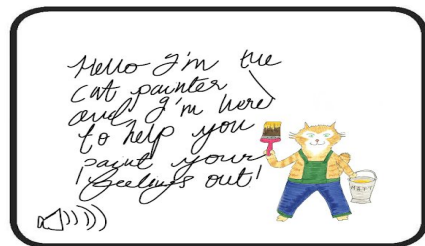 Hello I'm the
cat painter
and I'm here
to help you
paint your
feelings out!